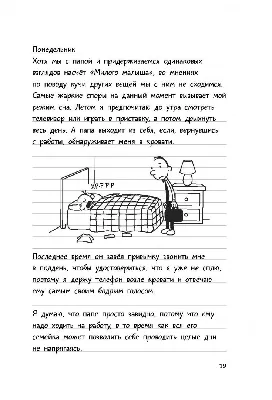 Понедельник
Хотя мы с папой и придерживаемся одинаковых
взглядов насчёт «Милого малыша», во мнениях
по поводу кучи других вещей мы с ним не сходимся.
Самые жаркие споры на данный момент вызывает мой
режим сна. Летом я предпочитаю до утра смотреть
телевизор или играть в приставку, а потом дрыхнуть
весь день. А папа выходит из себя, если, вернувшись
с работы, обнаруживает меня в кровати.
ХРРР
Последнее время он завёл привычку звонить мне
в полдень, чтобы удостовериться, что я уже не сплю,
поэтому я держу телефон возле кровати и отвечаю
ему самым своим бодрым голосом.
Я думаю, что папе просто завидно, потому что ему
надо ходить на работу, в то время как вся его
семейка может позволить себе проводить целые дни
не напрягаясь.
19